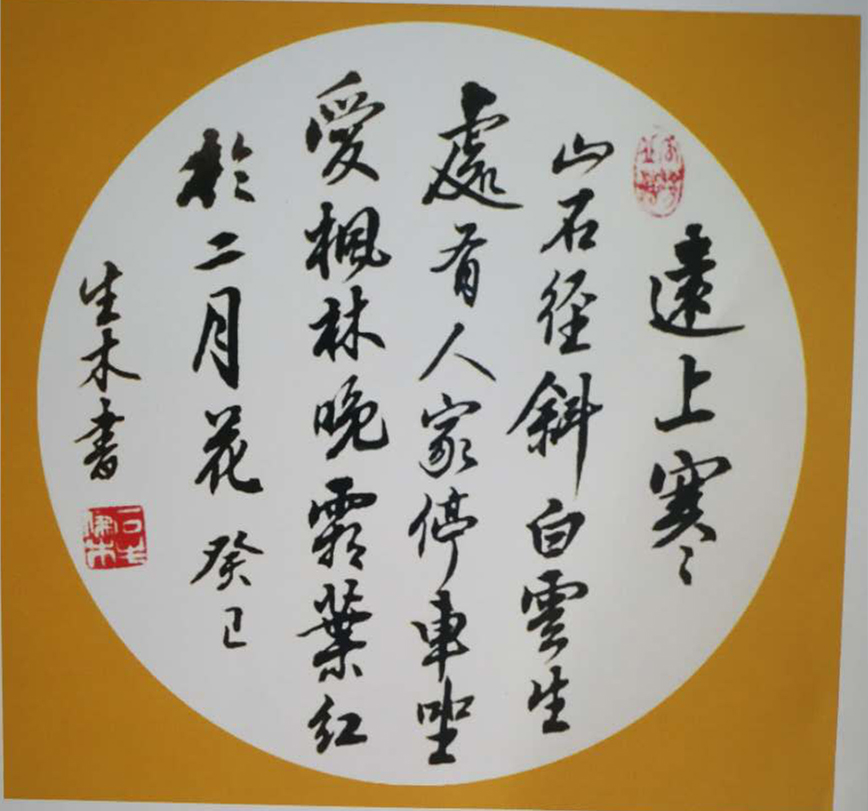 遠上寒
山石徑斜白雲生
處有人家停車坐
愛楓林晚霜葉紅
於二月花癸巳
生木書